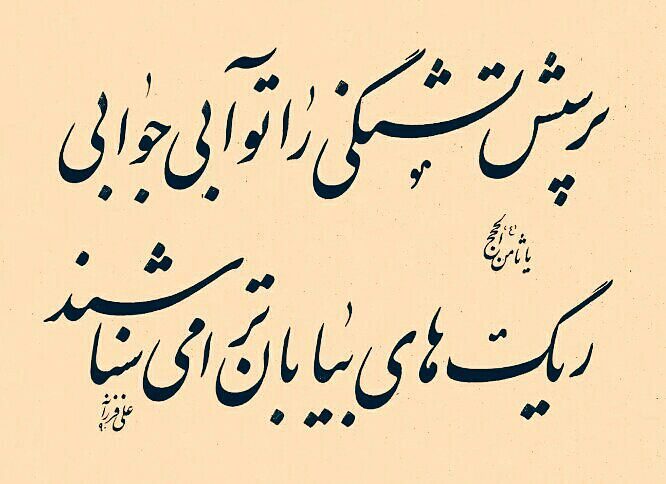 پرسش تشنگی را تو آبی جوابی
یا ثامن الحجج (ع)
ریگ های بیابان ترا می شناسند
علی فرزانه ۹